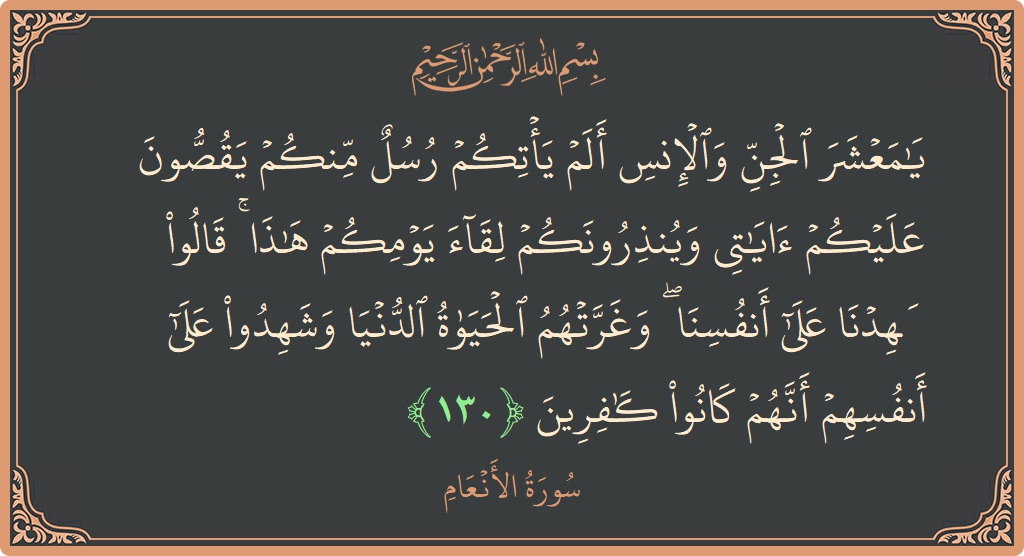 بِسْمِ اللَّهِ الرَّحْمَٰنِ الرَّحِيمِ
يَـٰمَعْشَرَ ٱلْجِنِّ وَٱلْإِنسِ أَلَمْ يَأْتِكُمْ رُسُلٌ مِّنكُمْ يَقُصُّونَ
عَلَيْكُمْ ءَايَـٰتِى وَيُنذِرُونَكُمْ لِقَآءَ يَوْمِكُمْ هَـٰذَا ۚ قَالُوا۟
َهِدْنَا عَلَىٰٓ أَنفُسِنَا ۖ وَغَرَّتْهُمُ ٱلْحَيَوٰةُ ٱلدُّنْيَا وَشَهِدُوا۟ عَلَىٰٓ
أَنفُسِهِمْ أَنَّهُمْ كَانُوا۟ كَـٰفِرِينَ ﴿١٣٠﴾
سُورَةُ الأَنْعَامِ